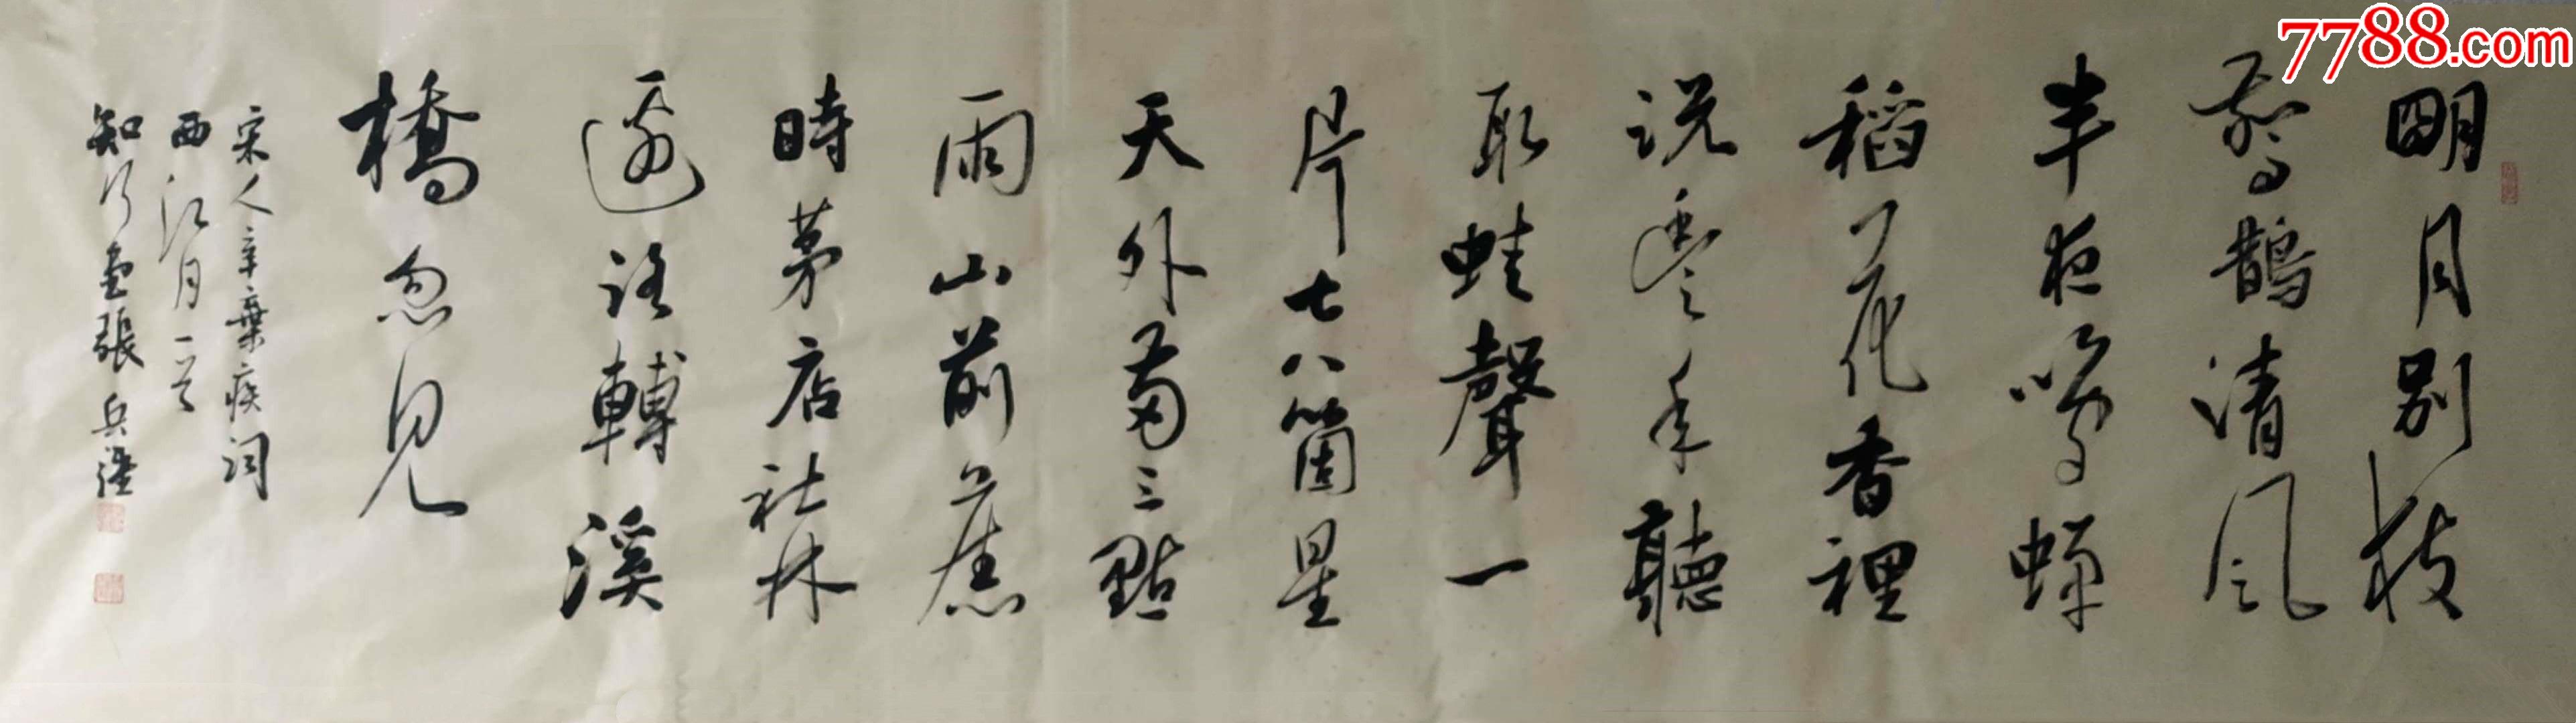 明月别枝
驚鵲清風
半夜鳴蟬
稻花香裡
说豐年聽
取蛙聲一
片七八箇星
天外兩三點
雨山前舊
時茅店社林
邊路轉溪
橋忽見
宋人辛棄疾词
西江月一首
知行堂張兵
7788.com